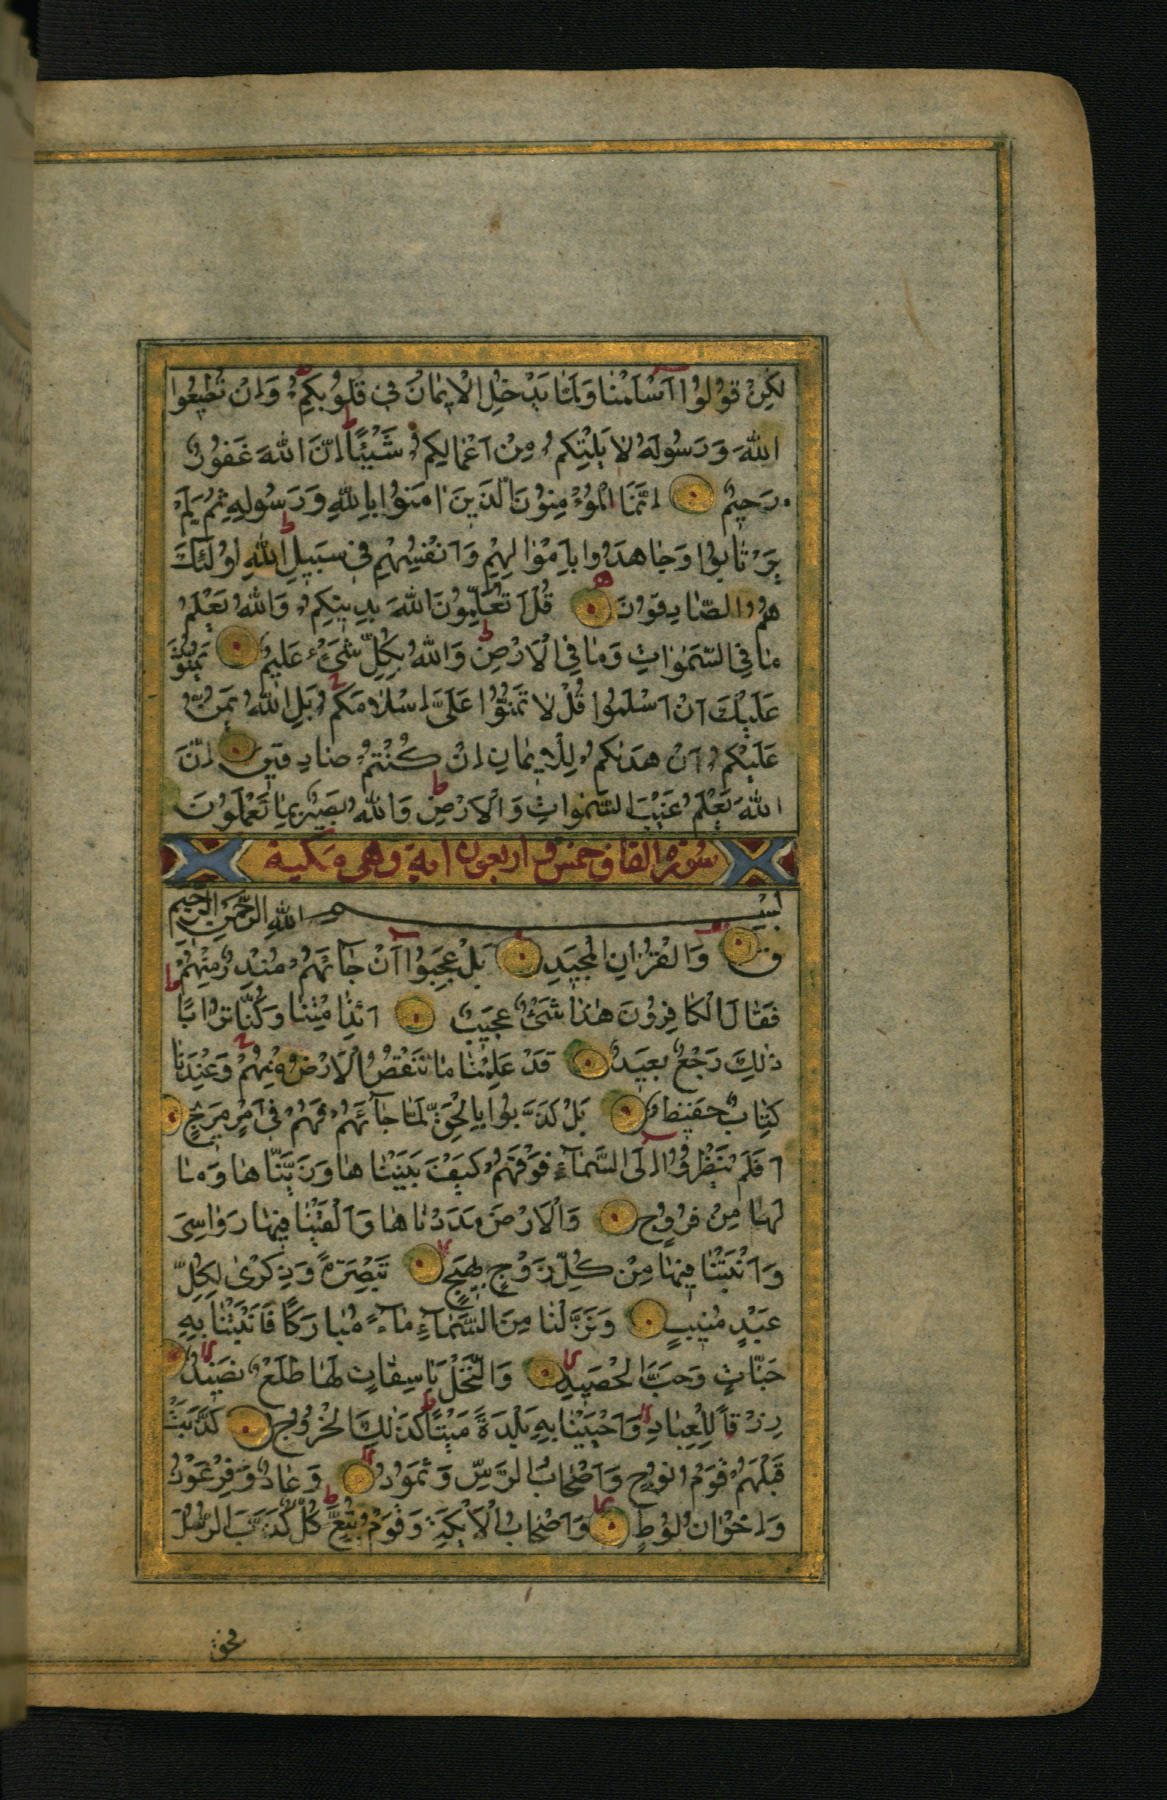 لٰكِنْ قُولُوا اَسْلَمْنَا وَلَمَّا يَدْخُلِ الْاِيمَانُ فِى قُلُوبِكُمْ وَاِنْ تُطِيعُوا
اللّٰهَ وَرَسُولَهُ لَا يَلِتْكُمْ مِنْ اَعْمَالِكُمْ شَيْئًا اِنَّ اللّٰهَ غَفُورٌ
رَحِيمٌ اِنَّمَا الْمُؤْمِنُونَ الَّذِينَ اٰمَنُوا بِاللّٰهِ وَرَسُولِهِ ثُمَّ لَمْ
يَرْتَابُوا وَجَاهَدُوا بِاَمْوَالِهِمْ وَاَنْفُسِهِمْ فِى سَبِيلِ اللّٰهِ اُولٰئِكَ
هُمُ الصَّادِقُونَ قُلْ اَتُعَلِّمُونَ اللّٰهَ بِدِينِكُمْ وَاللّٰهُ يَعْلَمُ
مَا فِى السَّمٰوَاتِ وَمَا فِى الْاَرْضِ وَاللّٰهُ بِكُلِّ شَىْءٍ عَلِيمٌ يَمُنُّونَ
عَلَيْكَ اَنْ اَسْلَمُوا قُلْ لَا تَمُنُّوا عَلَىَّ اِسْلَامَكُمْ بَلِ اللّٰهُ يَمُنُّ
عَلَيْكُمْ اَنْ هَدٰىكُمْ لِلْاِيمَانِ اِنْ كُنْتُمْ صَادِقِينَ اِنَّ
اللّٰهَ يَعْلَمُ غَيْبَ السَّمٰوَاتِ وَالْاَرْضِ وَاللّٰهُ بَصِيرٌ بِمَا تَعْمَلُونَ
سورة القاف خمس و اربعون اية وهى مكية
بِسْمِ اللّٰهِ الرَّحْمٰنِ الرَّحِيمِ
قٓ وَالْقُرْاٰنِ الْمَجِيدِ بَلْ عَجِبُوا اَنْ جَآءَهُمْ مُنْذِرٌ مِنْهُمْ
فَقَالَ الْكَافِرُونَ هٰذَا شَىْءٌ عَجِيبٌ اَئِذَا مِتْنَا وَكُنَّا تُرَابًا
ذٰلِكَ رَجْعٌ بَعِيدٌ قَدْ عَلِمْنَا مَا تَنْقُصُ الْاَرْضُ مِنْهُمْ وَعِنْدَنَا
كِتَابٌ حَفِيظٌ بَلْ كَذَّبُوا بِالْحَقِّ لَمَّا جَآءَهُمْ فَهُمْ فِى اَمْرٍ مَرِيجٍ
اَفَلَمْ يَنْظُرُوا اِلَى السَّمَآءِ فَوْقَهُمْ كَيْفَ بَنَيْنَاهَا وَزَيَّنَّاهَا وَمَا
لَهَا مِنْ فُرُوجٍ وَالْاَرْضَ مَدَدْنَاهَا وَاَلْقَيْنَا فِيهَا رَوَاسِىَ
وَاَنْبَتْنَا فِيهَا مِنْ كُلِّ زَوْجٍ بَهِيجٍ تَبْصِرَةً وَذِكْرٰى لِكُلِّ
عَبْدٍ مُنِيبٍ وَنَزَّلْنَا مِنَ السَّمَآءِ مَآءً مُبَارَكًا فَاَنْبَتْنَا بِهِ
جَنَّاتٍ وَحَبَّ الْحَصِيدِ وَالنَّخْلَ بَاسِقَاتٍ لَهَا طَلْعٌ نَضِيدٌ
رِزْقًا لِلْعِبَادِ وَاَحْيَيْنَا بِهِ بَلْدَةً مَيْتًا كَذٰلِكَ الْخُرُوجُ كَذَّبَتْ
قَبْلَهُمْ قَوْمُ نُوحٍ وَاَصْحَابُ الرَّسِّ وَثَمُودُ وَعَادٌ وَفِرْعَوْنُ
وَاِخْوَانُ لُوطٍ وَاَصْحَابُ الْاَيْكَةِ وَقَوْمُ تُبَّعٍ كُلٌّ كَذَّبَ الرُّسُلَ
فحق